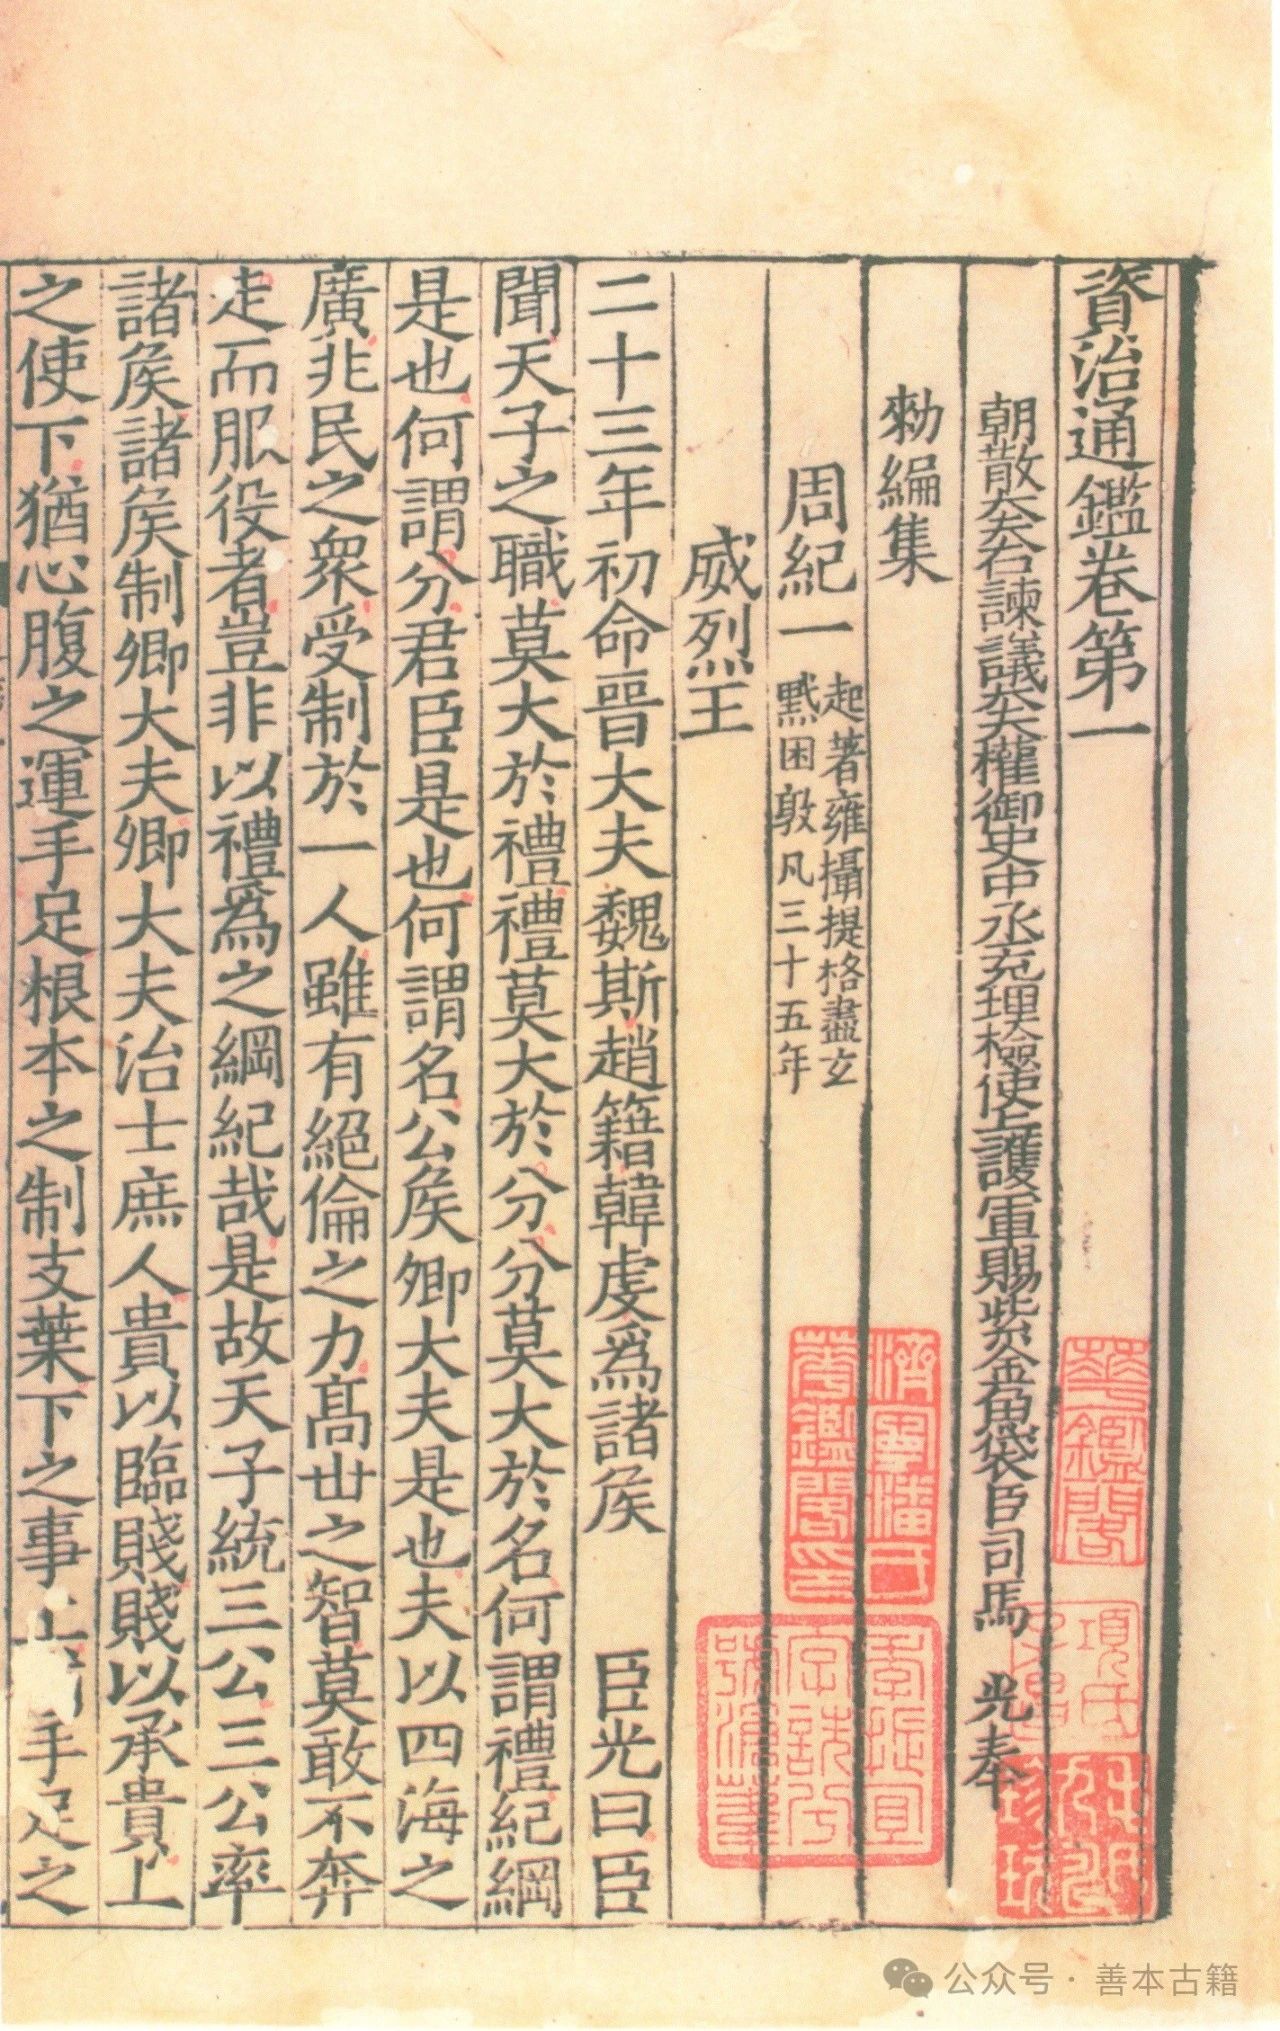 資治通鑑卷第一
朝散大夫右諫議大夫權御史中丞充理檢使上護軍賜紫金魚袋臣司馬光奉
勑編集
周紀一 起著雍攝提格盡玄
黓困敦凡三十五年
威烈王
二十三年初命晉大夫魏斯趙籍韓虔爲諸侯 臣光曰臣
聞天子之職莫大於禮禮莫大於分分莫大於名何謂禮紀綱
是也何謂分君臣是也何謂名公侯卿大夫是也夫以四海之
廣兆民之衆受制於一人雖有絕倫之力髙世之智莫敢不奔
走而服役者豈非以禮爲之綱紀哉是故天子統三公三公率
諸侯諸侯制卿大夫卿大夫治士庶人貴以臨賤賤以承貴上
之使下猶心腹之運手足根本之制支葉下之事上 手足之
華鑑閣
項氏
季振宜
字詵兮
號滄葦
公众号·善本古籍